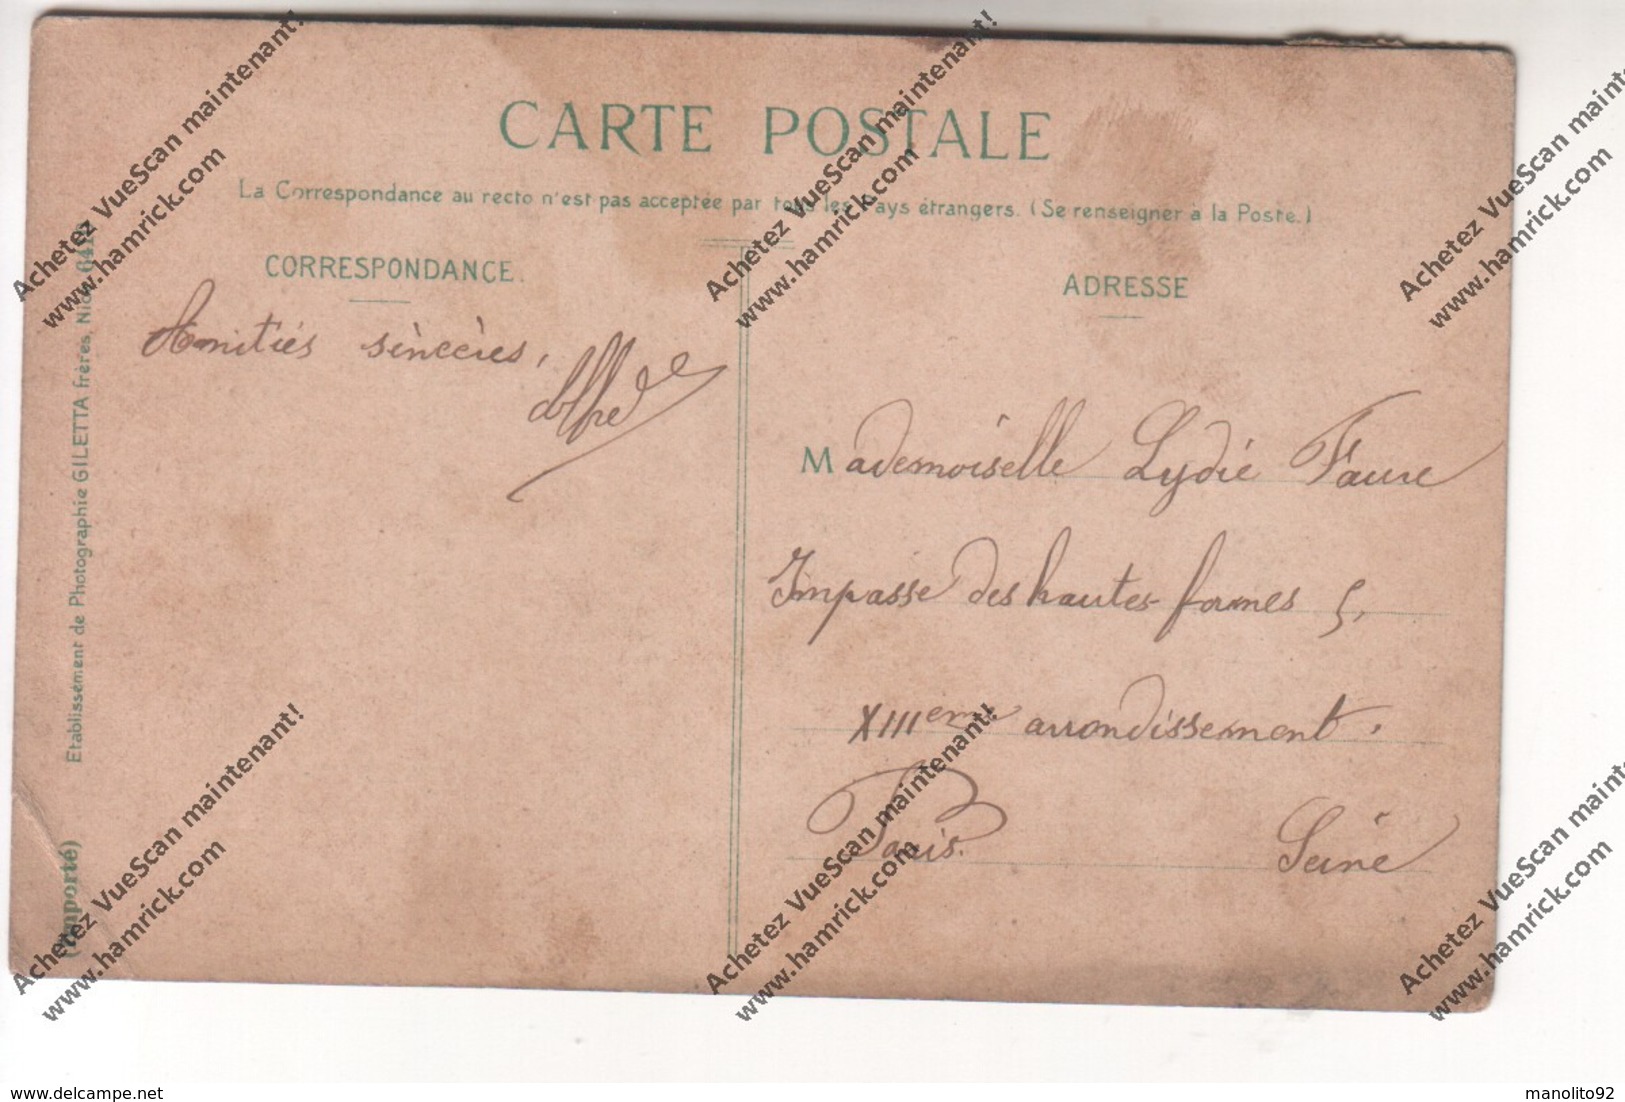 CARTE POSTALE
La Correspondance au recto n'est pas acceptée par tous les Pays étrangers. (Se renseigner à la Poste.)
CORRESPONDANCE.
Amitiés sincères,
Alfred
ADRESSE
Mademoiselle Lydie Faure
Impasse des hautes-formes 5,
XIIIeme arrondissement.
Paris. Seine
Etablissement de Photographie GILETTA frères, Nice
(Importé)
Achetez VueScan maintenant!
www.hamrick.com
Achetez VueScan maintenant!
www.hamrick.com
Achetez VueScan maint
www.hamrick.com
Achetez VueScan maintenant!
www.hamrick.com
Achetez VueScan maintenant!
www.hamrick.com
Achetez VueScan maint
www.hamrick.com
www.delcampe.net
manolito92